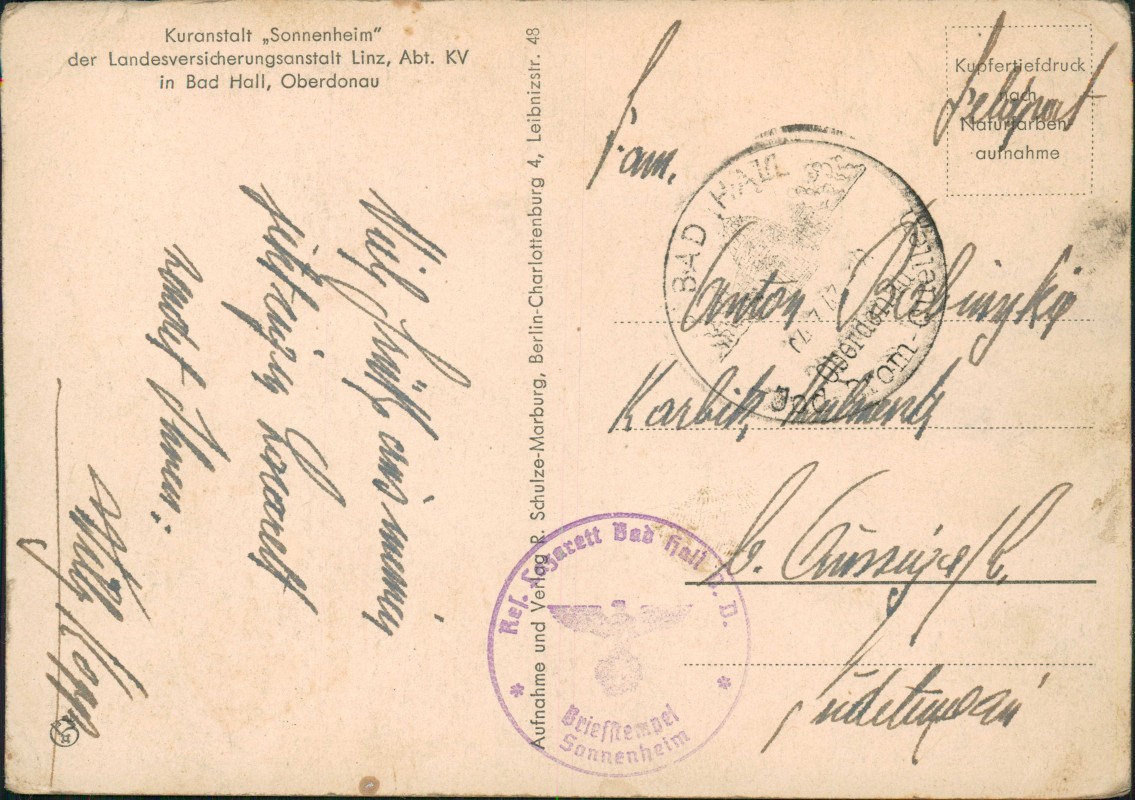 Kuranstalt „Sonnenheim"
der Landesversicherungsanstalt Linz, Abt. KV
in Bad Hall, Oberdonau
Viele Grüße aus meinem
jetzigen Lazarett
sendet Ihnen
Willy
Aufnahme und Verlag R. Schulze-Marburg, Berlin-Charlottenburg 4, Leibnizstr. 48
Kupfertiefdruck
nach
Naturfarben-
aufnahme
Feldpost
Fam.
Anton
Karbitz,
b. Aussig/E.
Sudetengau
BAD HALL
Oberdonau
Jod-Brom-Quellen
Res. Lazarett Bad Hall O. D.
Briefstempel
Sonnenheim